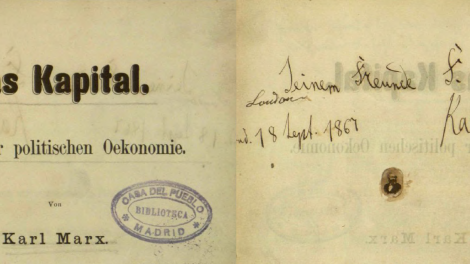 as Kapital.
r politischen Oekonomie.
Von
Karl Marx.
CASA DEL PUEBLO
BIBLIOTECA
MADRID
Seinem Freunde
London
d. 18 Sept. 1867
Ka